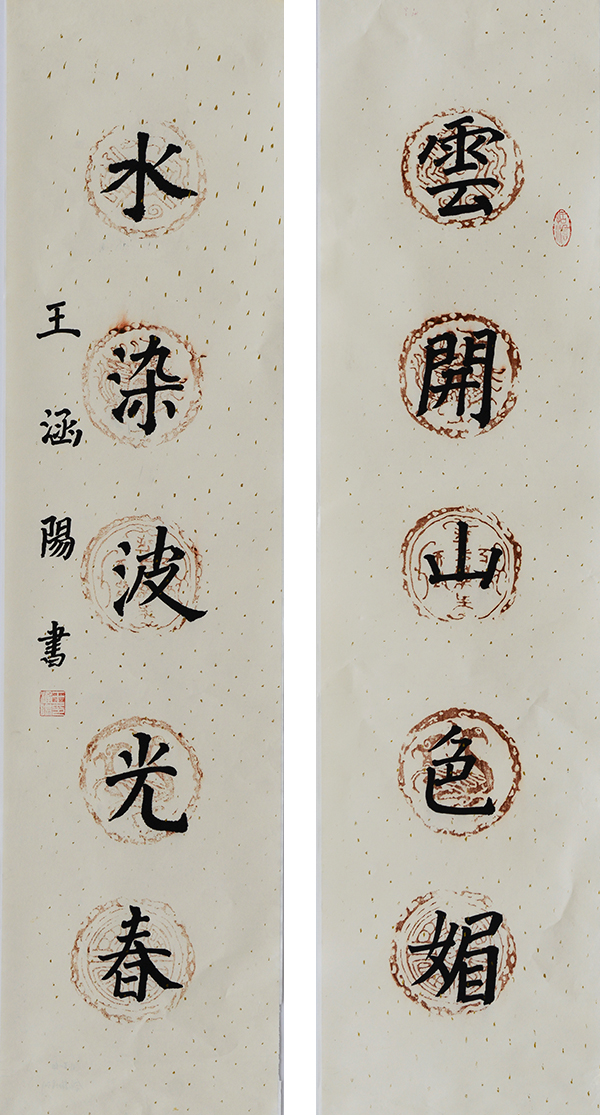 雲開山色媚
水染波光春
王涵陽書